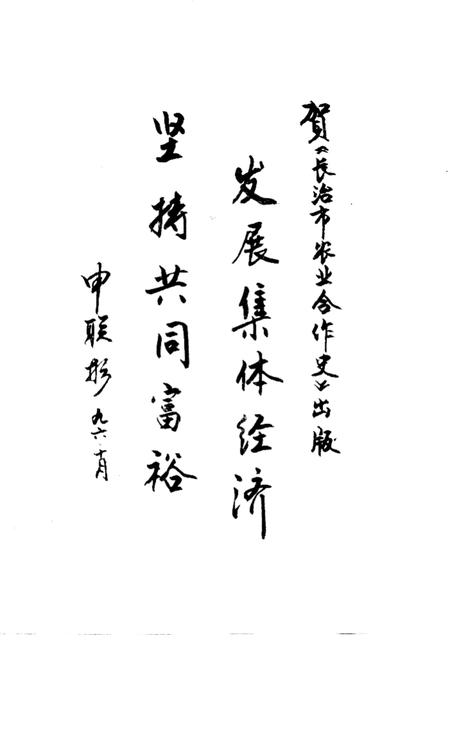 贺《长治市农业合作史》出版
发展集体经济
坚持共同富裕
申联彬 九六、十月